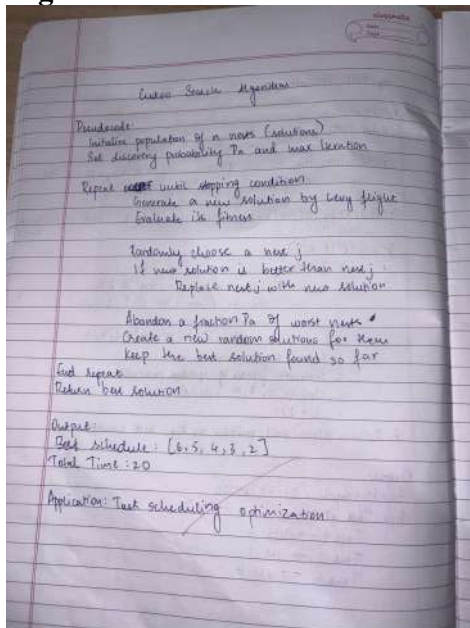 classmate
Date
Page
Cuckoo Search Algorithm
Pseudocode:
Initialize population of n nests (solutions)
Set discovery probability Pa and max iteration
Repeat until stopping condition
Generate a new solution by levy flight
Evaluate its fitness
Randomly choose a nest j
If new solution is better than nest j
Replace nest j with new solution
Abandon a fraction Pa of worst nests
Create a new random solutions for them
Keep the best solution found so far
End repeat
Return best solution
Output:
Best schedule: [6, 5, 4, 3, 2]
Total Time: 20
Application: Task scheduling optimization